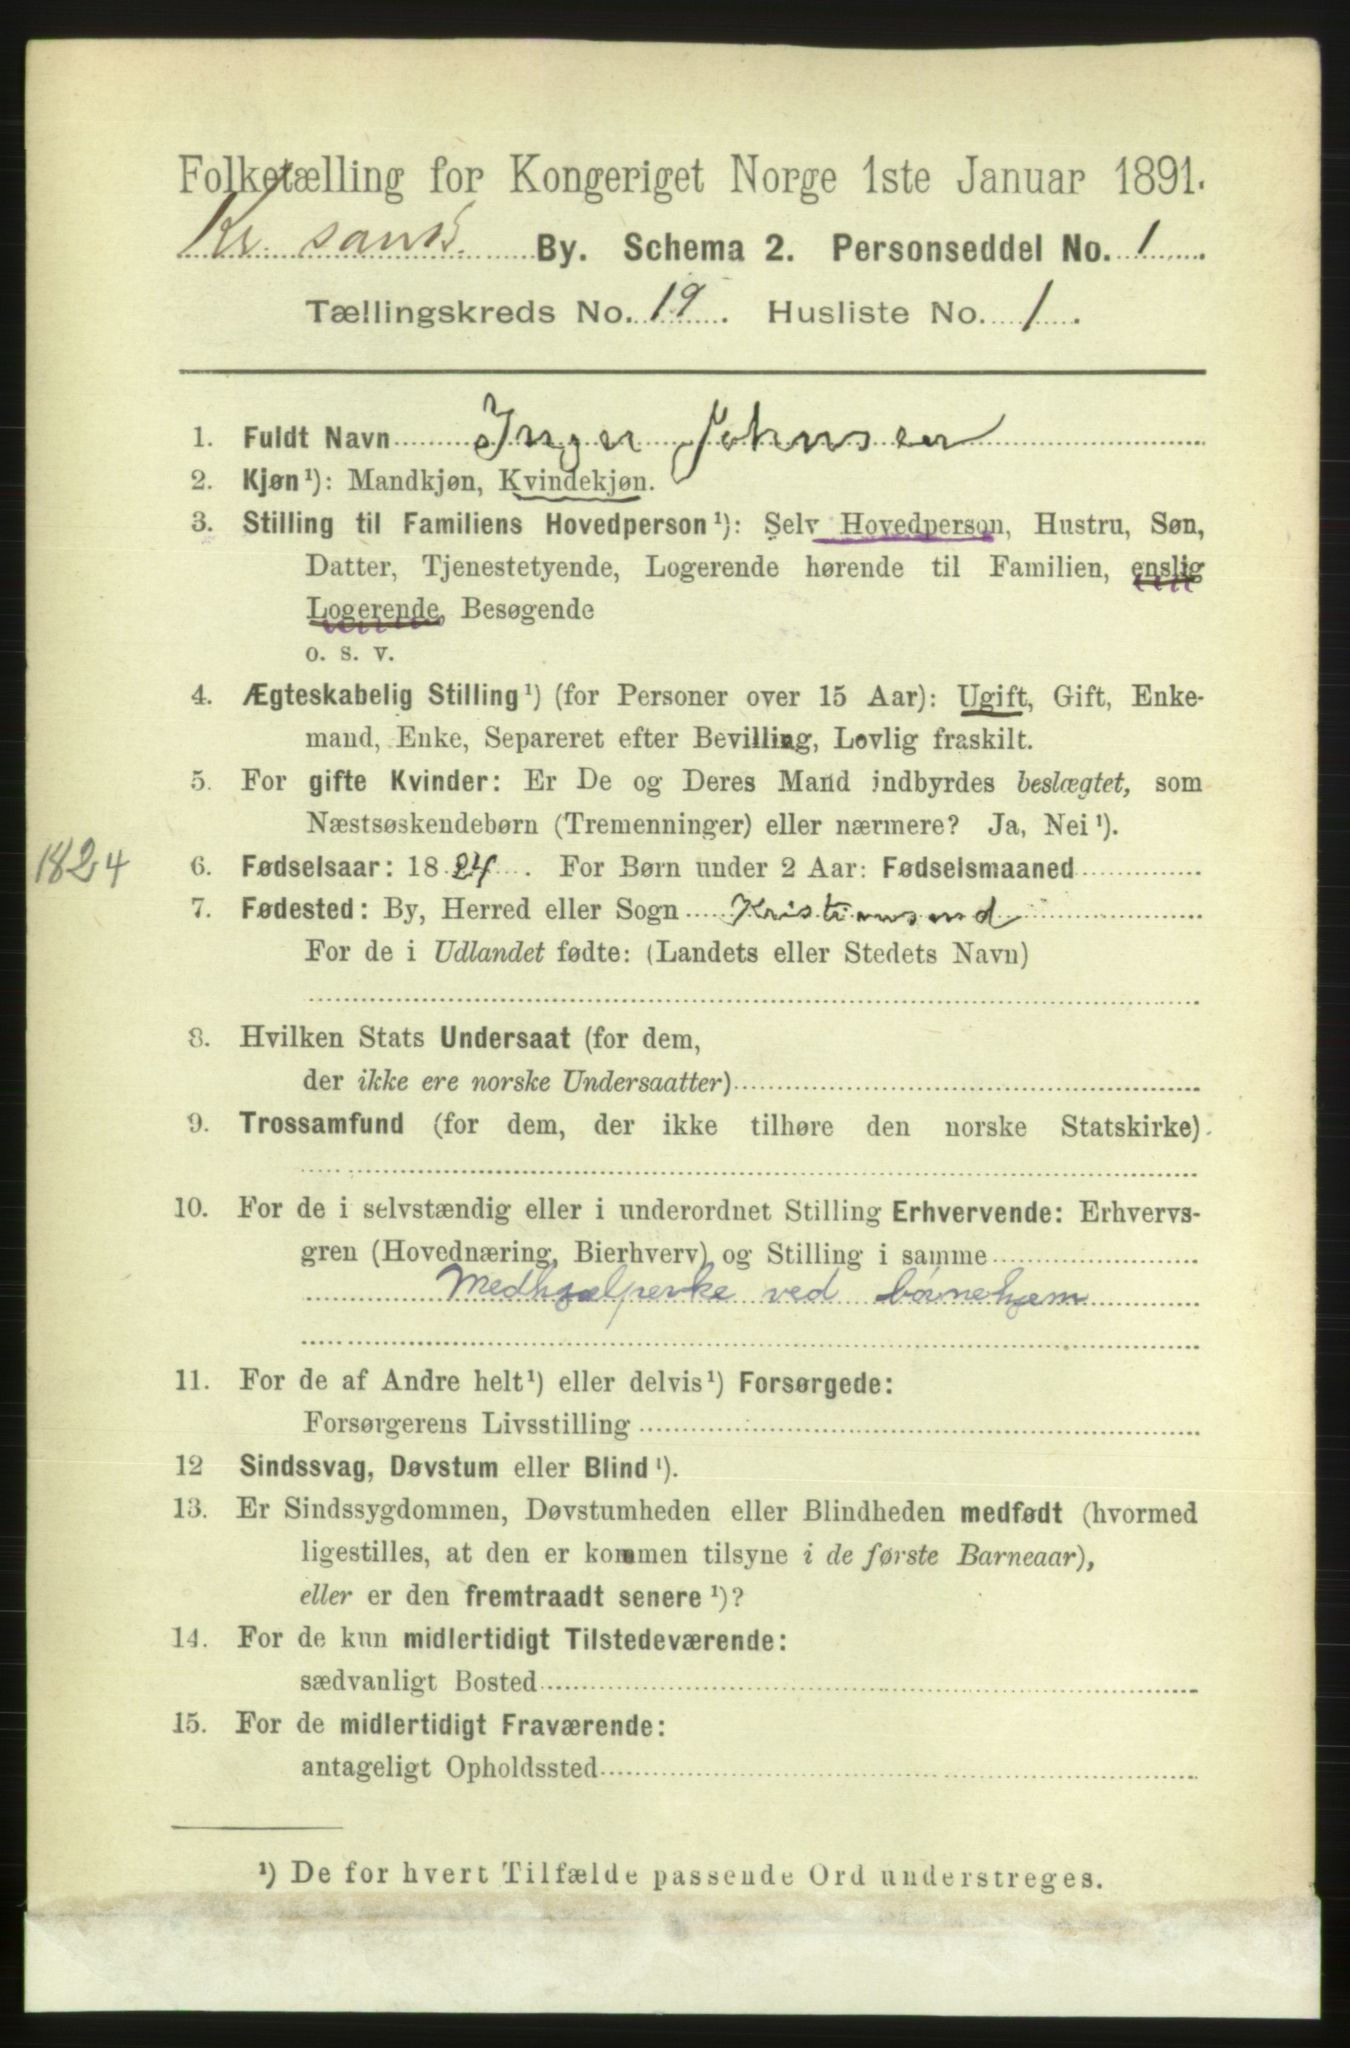 Folketælling for Kongeriget Norge 1ste Januar 1891.
Kr. sand By. Schema 2. Personseddel No. 1
Tællingskreds No. 19. Husliste No. 1.
1. Fuldt Navn Inger Johnsen
2. Kjøn¹): Mandkjøn, Kvindekjøn.
3. Stilling til Familiens Hovedperson¹): Selv Hovedperson, Hustru, Søn,
Datter, Tjenestetyende, Logerende hørende til Familien, enslig
Logerende, Besøgende
o. s. v.
4. Ægteskabelig Stilling¹) (for Personer over 15 Aar): Ugift, Gift, Enke-
mand, Enke, Separeret efter Bevilling, Lovlig fraskilt.
5. For gifte Kvinder: Er De og Deres Mand indbyrdes beslægtet, som
Næstsøskendebørn (Tremenninger) eller nærmere? Ja, Nei¹).
1824
6. Fødselsaar: 1824. For Børn under 2 Aar: Fødselsmaaned
7. Fødested: By, Herred eller Sogn Kristiansand
For de i Udlandet fødte: (Landets eller Stedets Navn)
8. Hvilken Stats Undersaat (for dem,
der ikke ere norske Undersaatter)
9. Trossamfund (for dem, der ikke tilhøre den norske Statskirke)
10. For de i selvstændig eller i underordnet Stilling Erhvervende: Erhvervs-
gren (Hovednæring, Bierhverv) og Stilling i samme
Medhjælperke ved børnehjem
11. For de af Andre helt¹) eller delvis¹) Forsørgede:
Forsørgerens Livsstilling
12 Sindssvag, Døvstum eller Blind¹).
13. Er Sindssygdommen, Døvstumheden eller Blindheden medfødt (hvormed
ligestilles, at den er kommen tilsyne i de første Barneaar),
eller er den fremtraadt senere¹)?
14. For de kun midlertidigt Tilstedeværende:
sædvanligt Bosted
15. For de midlertidigt Fraværende:
antageligt Opholdssted
¹) De for hvert Tilfælde passende Ord understreges.